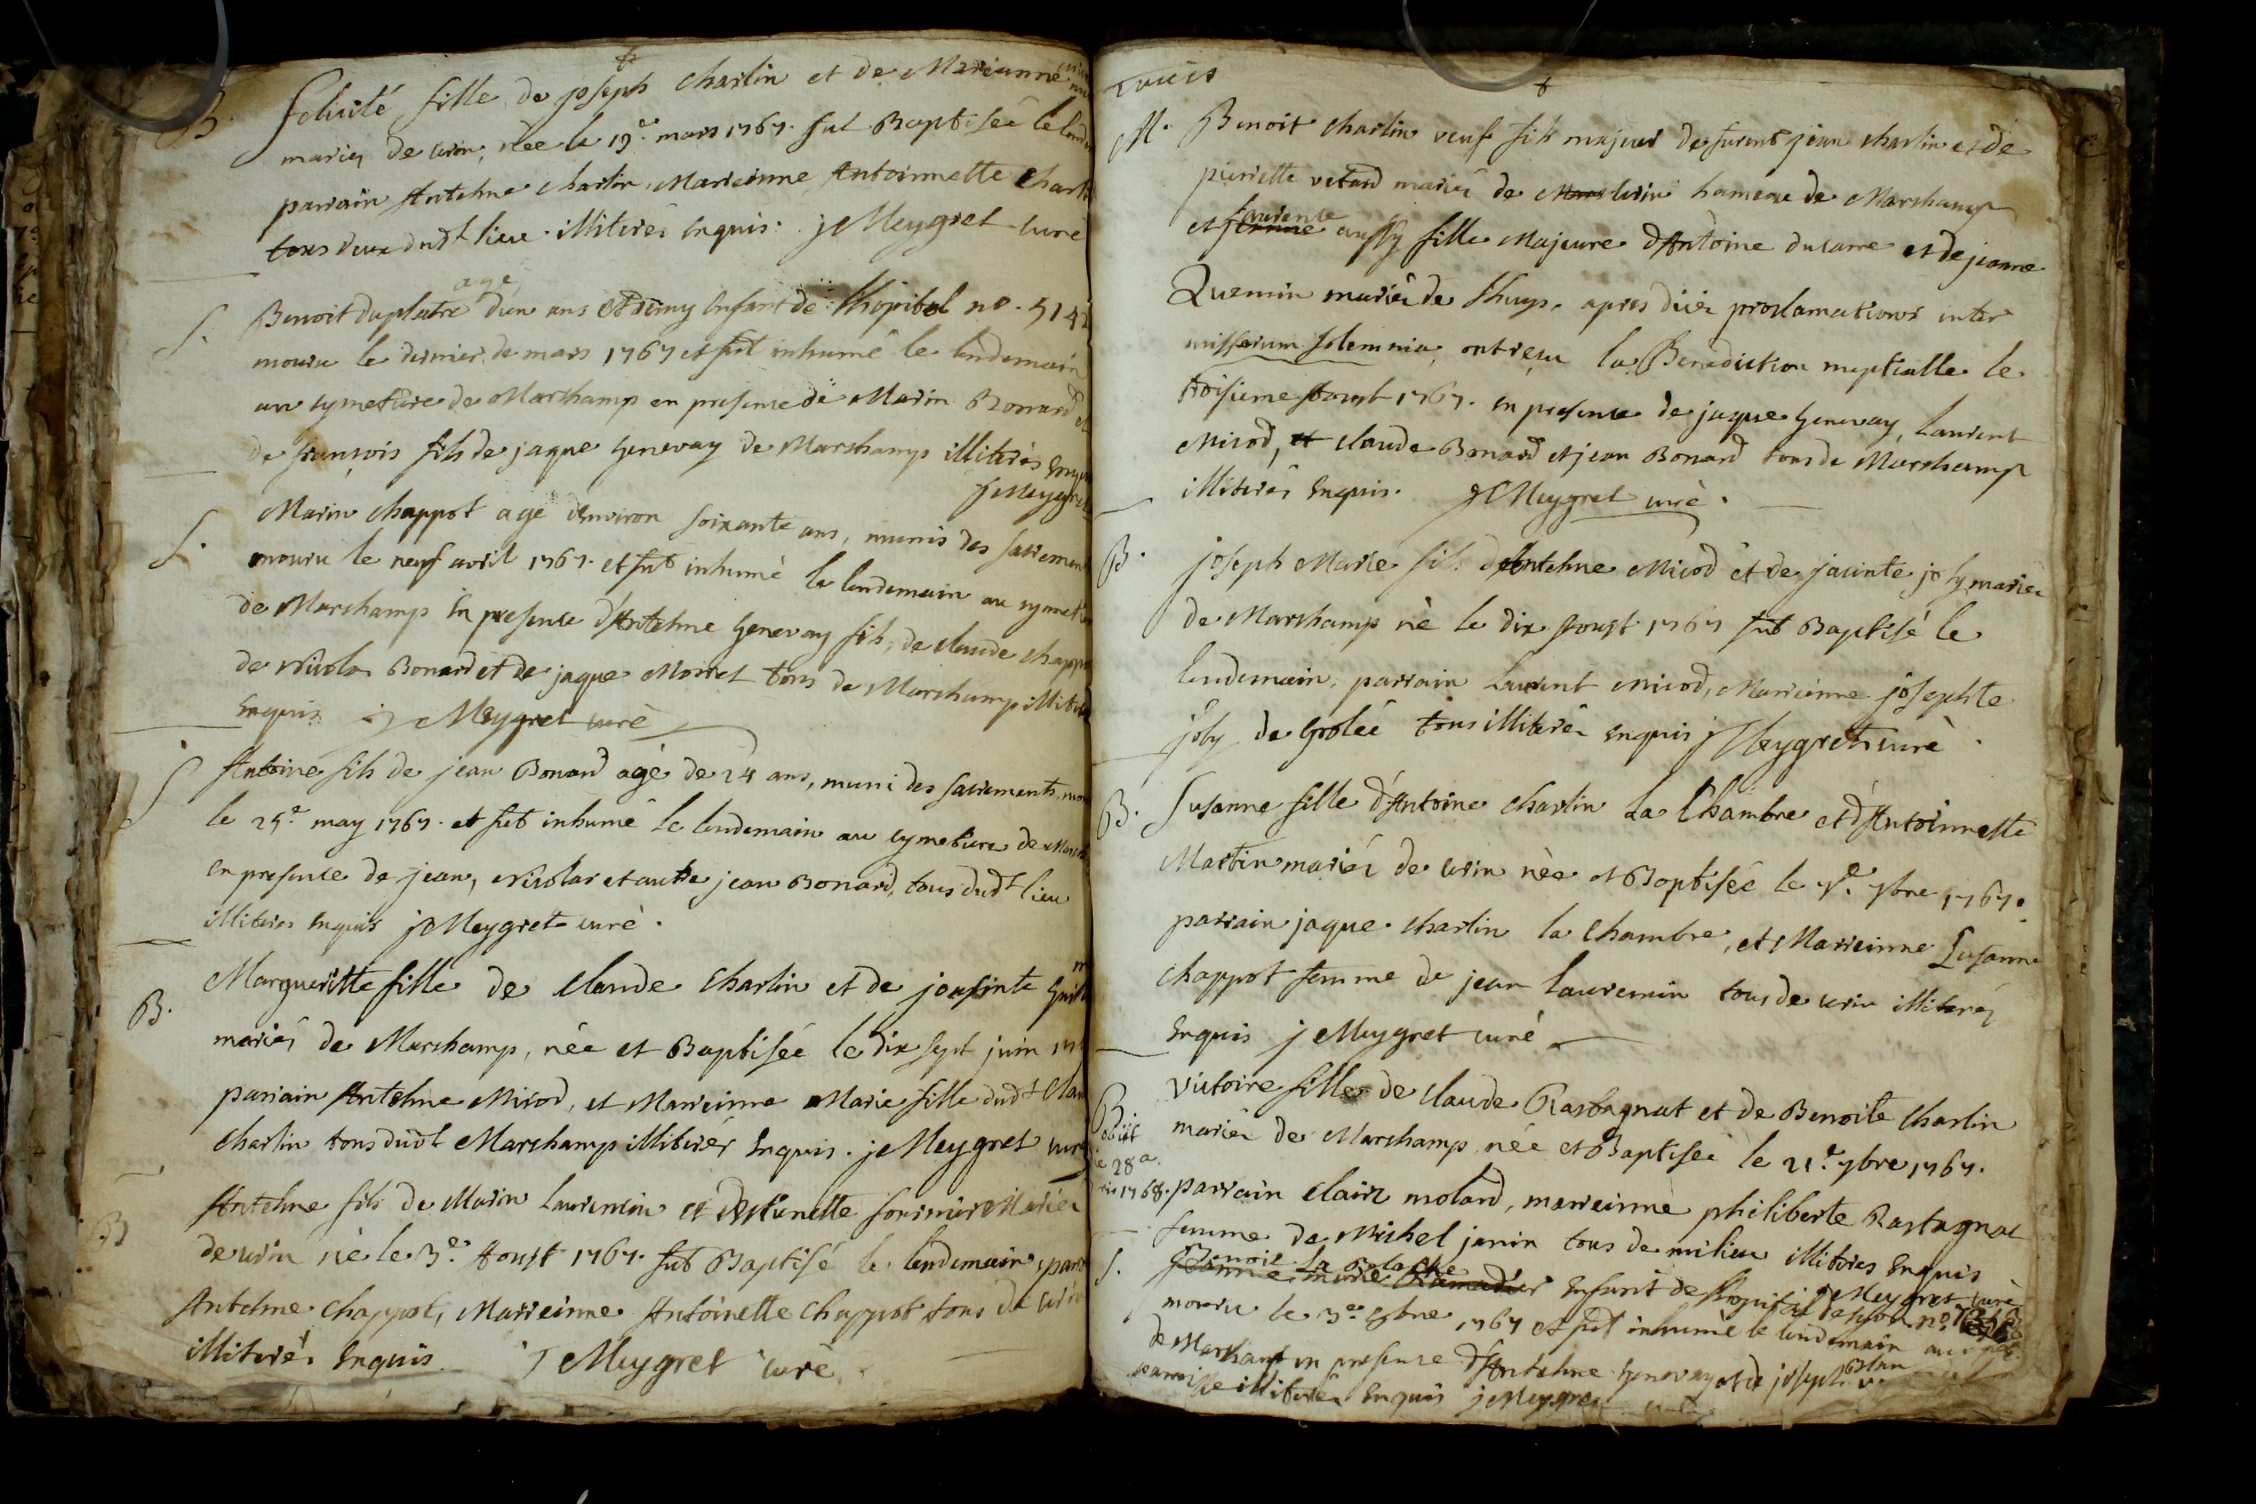 B. felicité fille de joseph charlin et de Marianne
mariés de Urin, née le 19.e mars 1767. fut Baptisée le lend
parrain Antelme charlin, Marrienne Antoinnette Charl
tous deux dudt lieu illiterés Enquis. j Meygret curé
S. Benoit duplatre agé d'un ans et demy Enfant de lhopital no. 514
mouru le dernier de mars 1767 et fut inhumé le lendemain
au cymetiere de Marchamp en presence de Marin Bonard et
de françois fils de jaque Genevay de Marchamp illiterés Enquis
j Meygret
S. Marin Chappot agé denviron soixante ans, munis des sacrements
mouru le neuf avril 1767. et fut inhumé le lendemain au cymetiere
de Marchamp En presence d'Antelme Genevay fils, de claude chappot
de Nicolas Bonard et de jaque Moiret tous de Marchamp illiterés
Enquis j Meygret curé
S Antoine fils de jean Bonard agé de 24 ans, muni des sacrements, mou
le 25.e may 1767. et fut inhumé le lendemain au cymetiere de March
en presence de jean, Nicolas et autre jean Bonard, tous dudt lieu
illiteres Enquis j Meygret curé.
B. Margueritte fille de claude Charlin et de joasinte
mariés de Marchamp, née et Baptisée le dix sept juin 17
parrain Antelme Micod, et Marrienne Marie fille dudt Clau
Charlin tous dudt Marchamp illiterés Enquis. j Meygret curé
B Antelme fils de Marin Laurencin et d'Estienette fournier Mariés
de Urin né le 3.e Aoust 1767. fut Baptisé le lendemain, parr
Antelme Chappot, Marrienne Antoinette Chappot tous de Urin
illiterés Enquis J Meygret curé
M. Benoit charlin veuf fils majeur de furent jean charlin et de
pierrette vetard mariés de Urin hameau de Marchamp
et laurence aussy fille Majeure d'Antoine ducarre et de jeanne
Quemin mariés de lhuys. apres dues proclamations inter
missarum solemnia, ont reçu la Benediction nuptialle le
troisieme Aoust 1767. en presence de jaque Genevay, Laurent
Micod, et claude Bonard et jean Bonard tous de Marchamp
illiterés Enquis. j Meygret curé.
B. joseph Marie fils d'Antelme Micod et de jacinte joly mariés
de Marchamp né le dix Aoust 1767 fut Baptisé le
lendemain, parrain Laurent Micod, Marrienne josephte
joly de Grolée tous illiterés Enquis j Meygret curé.
B. Susanne fille d'Antoine charlin La Chambre et d'Antoinnette
Martin mariés de Urin née et Baptisée le 7.e 7bre 1767.
parrain jaque charlin la Chambre, et Marrienne Susanne
chappot femme de jean Laurencin tous de Urin illiterés
Enquis j Meygret curé
B victoire fille de claude Rastagnat et de Benoite Charlin
obiit mariés de Marchamp née et Baptisée le 21.e 7bre 1767.
28a 1768. parrain Clair molard, marrienne philiberte Rastagnat
femme de Michel janin tous de milieu illiteres Enquis
j Meygret curé
S. Benoit La Enfant de lhopital de lyon no.
mouru le 3.e 8bre 1767 et fut inhumé le lendemain au
de Marchamp en presence d'Antelme Genevay et de joseph
paroisse illiterés Enquis j Meygret curé